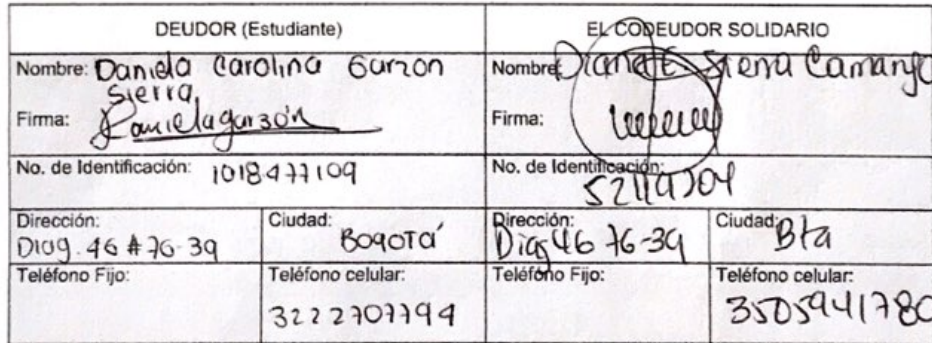 DEUDOR (Estudiante)
EL CODEUDOR SOLIDARIO
Nombre: Daniela Carolina Garzon
Sierra
Firma: Danielagarzón
Nombre: Diana E Sierra Camargo
Firma:
No. de Identificación: 1018477109
No. de Identificación:
Dirección:
Diag. 46 # 76-39
Ciudad:
Bogotá
Dirección:
Diag 46 76-39
Ciudad:
Bta
Teléfono Fijo:
Teléfono celular:
3222707794
Teléfono Fijo:
Teléfono celular:
3505941780